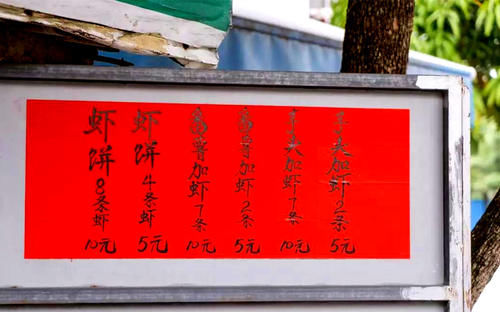 虾饼8条虾10元
虾饼4条虾5元
加虾7条10元
加虾2条5元
芋头加虾7条10元
芋头加虾2条5元